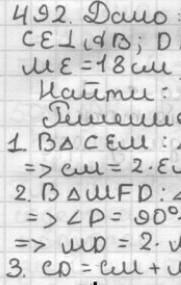 492. Дано:
CE⊥AB; D
ME = 18 см
Найти:
Решение
1. В△CEM: ∠
=> CM = 2·E
2. В△MFD: ∠
=> ∠D = 90°
=> MD = 2·
3. CD = CM +